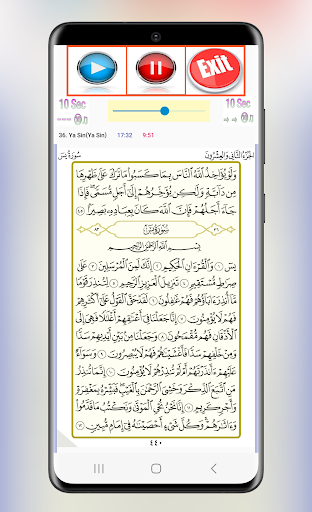 Exit
10 Sec
10 Sec
36. Ya Sin(Ya Sin) 17:32 9:51
سُورَةُ يسٓ الجزء الثاني والعشرون
وَلَوْ يُؤَاخِذُ ٱللَّهُ ٱلنَّاسَ بِمَا كَسَبُواْ مَا تَرَكَ عَلَىٰ ظَهْرِهَا
مِن دَآبَّةٍ وَلَٰكِن يُؤَخِّرُهُمْ إِلَىٰٓ أَجَلٍ مُّسَمًّى فَإِذَا
جَآءَ أَجَلُهُمْ فَإِنَّ ٱللَّهَ كَانَ بِعِبَادِهِۦ بَصِيرًۢا ٤٥
٣٦ سُورَةُ يسٓ ٨٣
بِسْمِ ٱللَّهِ ٱلرَّحْمَٰنِ ٱلرَّحِيمِ
يسٓ ١ وَٱلْقُرْءَانِ ٱلْحَكِيمِ ٢ إِنَّكَ لَمِنَ ٱلْمُرْسَلِينَ ٣ عَلَىٰ
صِرَٰطٍ مُّسْتَقِيمٍ ٤ تَنزِيلَ ٱلْعَزِيزِ ٱلرَّحِيمِ ٥ لِتُنذِرَ قَوْمًا
مَّآ أُنذِرَ ءَابَآؤُهُمْ فَهُمْ غَٰفِلُونَ ٦ لَقَدْ حَقَّ ٱلْقَوْلُ عَلَىٰٓ أَكْثَرِهِمْ
فَهُمْ لَا يُؤْمِنُونَ ٧ إِنَّا جَعَلْنَا فِىٓ أَعْنَٰقِهِمْ أَغْلَٰلًا فَهِىَ إِلَى
ٱلْأَذْقَانِ فَهُم مُّقْمَحُونَ ٨ وَجَعَلْنَا مِنۢ بَيْنِ أَيْدِيهِمْ سَدًّا
وَمِنْ خَلْفِهِمْ سَدًّا فَأَغْشَيْنَٰهُمْ فَهُمْ لَا يُبْصِرُونَ ٩ وَسَوَآءٌ
عَلَيْهِمْ ءَأَنذَرْتَهُمْ أَمْ لَمْ تُنذِرْهُمْ لَا يُؤْمِنُونَ ١٠ إِنَّمَا تُنذِرُ
مَنِ ٱتَّبَعَ ٱلذِّكْرَ وَخَشِىَ ٱلرَّحْمَٰنَ بِٱلْغَيْبِ فَبَشِّرْهُ بِمَغْفِرَةٍ
وَأَجْرٍ كَرِيمٍ ١١ إِنَّا نَحْنُ نُحْىِ ٱلْمَوْتَىٰ وَنَكْتُبُ مَا قَدَّمُواْ
وَءَاثَٰرَهُمْ وَكُلَّ شَىْءٍ أَحْصَيْنَٰهُ فِىٓ إِمَامٍ مُّبِينٍ ١٢
٤٤٠